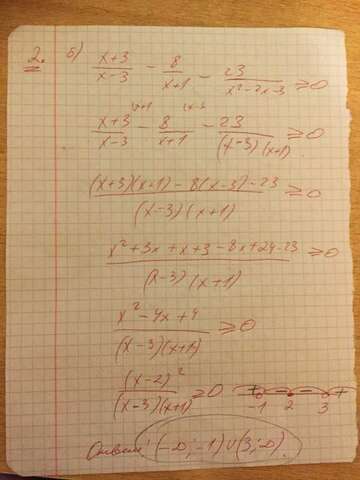 2. б) (x+3)/(x-3) - 8/(x+1) - 23/(x²-2x-3) ≥ 0
(x+3)/(x-3) - 8/(x+1) - 23/((x-3)(x+1)) ≥ 0
((x+3)(x+1) - 8(x-3) - 23)/((x-3)(x+1)) ≥ 0
(x²+3x+x+3-8x+24-23)/((x-3)(x+1)) ≥ 0
(x²-4x+4)/((x-3)(x+1)) ≥ 0
(x-2)²/((x-3)(x+1)) ≥ 0 + - - + -1 2 3
Ответ: (-∞; -1)∪(3; ∞).